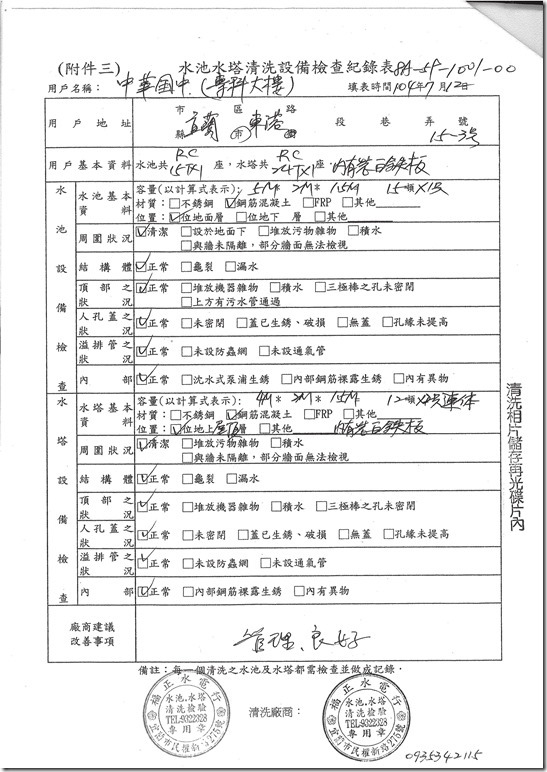 (附件三) 水池水塔清洗設備檢查紀錄表 8A-59-1001-00
用戶名稱：中華國中.(專科大樓) 填表時間104年7月12日
用戶地址 宜蘭 市縣 區市 東港 路街 段 巷 弄 號 15-3號
用戶基本資料 水池共 RC 15TX1 座，水塔共 RC 24TX1 座．內有卷白鐵板
水池設備檢查
水池基本資料 容量(以計算式表示)：5M* 2M* 1.5M 15噸X1只
材質：□不銹鋼 ☑鋼筋混凝土 □FRP □其他
位置：☑位地面層 □位地下 層 □其他
周圍狀況 ☑清潔 □設於地面下 □堆放污物雜物 □積水
□與牆未隔離，部分牆面無法檢視
結構體 ☑正常 □龜裂 □漏水
頂部之狀況 ☑正常 □堆放機器雜物 □積水 □三極棒之孔未密閉
□上方有污水管通過
人孔蓋之狀況 ☑正常 □未密閉 □蓋已生銹、破損 □無蓋 □孔緣未提高
溢排管之狀況 ☑正常 □未設防蟲網 □未設通氣管
內部 ☑正常 □沈水式泵浦生銹 □內部鋼筋裸露生銹 □內有異物
水塔設備檢查
水塔基本資料 容量(以計算式表示)：4M* 2M* 1.5M 12噸X2只連体
材質：□不銹鋼 ☑鋼筋混凝土 □FRP □其他
位置：☑位地上屋頂層 □其他 內有卷白鐵板
周圍狀況 ☑清潔 □堆放污物雜物 □積水
□與牆未隔離，部分牆面無法檢視
結構體 ☑正常 □龜裂 □漏水
頂部之狀況 ☑正常 □堆放機器雜物 □積水 □三極棒之孔未密閉
人孔蓋之狀況 ☑正常 □未密閉 □蓋已生銹、破損 □無蓋 □孔緣未提高
溢排管之狀況 ☑正常 □未設防蟲網 □未設通氣管
內部 ☑正常 □內部鋼筋裸露生銹 □內有異物
廠商建議改善事項 管理、良好
清洗相片儲存再光碟片內
備註：每一個清洗之水池及水塔都需檢查並做成記錄．
清洗廠商：
福正水電行
水池.水塔
清洗檢驗
TEL:9322328
專用章
宜蘭市民權新路275號
福正水電行
水池.水塔
清洗檢驗
TEL:9322328
專用章
宜蘭市民權新路275號
0935342115